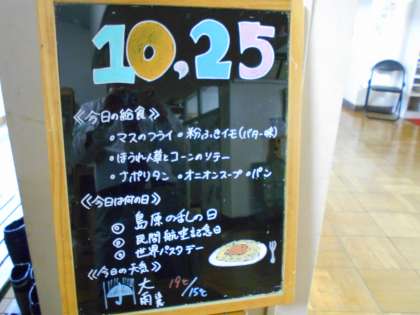 10,25
《今日の給食》
◦マスのフライ ◦粉ふきイモ(バター味)
◦ほうれん草とコーンのソテー
◦ナポリタン ◦オニオンスープ ◦パン
《今日は何の日》
◎島原の乱の日
◎民間航空記念日
◎世界パスタデー
《今日の天気》
大雨
19℃/15℃